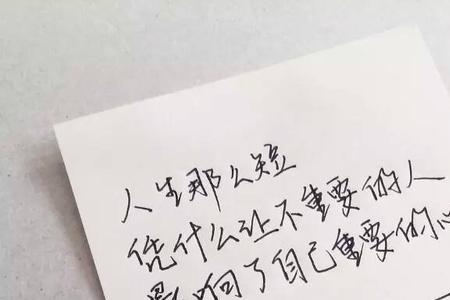 人生那么短
凭什么让不重要的人
影响了自己重要的心